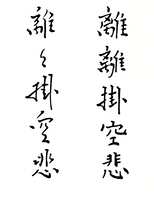 離離掛空悲
離〻掛空悲